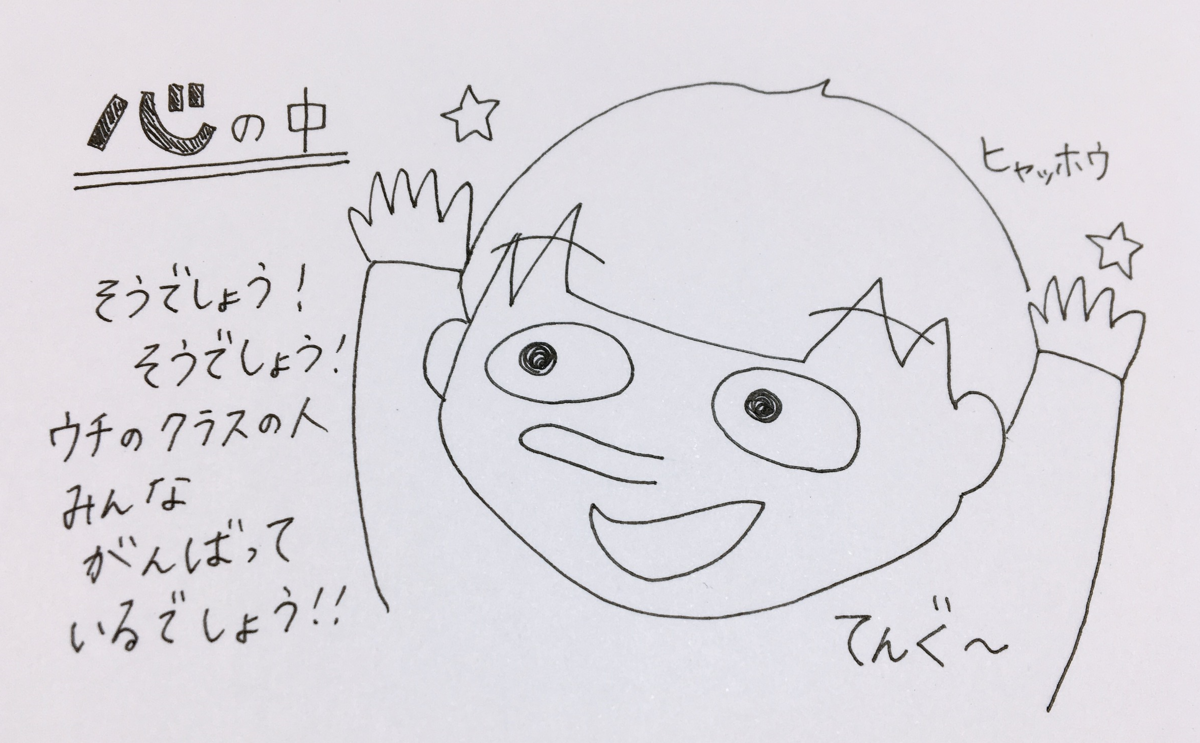 心の中
ヒャッホウ
そうでしょう！
そうでしょう！
ウチのクラスの人
みんな
がんばって
いるでしょう!!
てんぐ〜